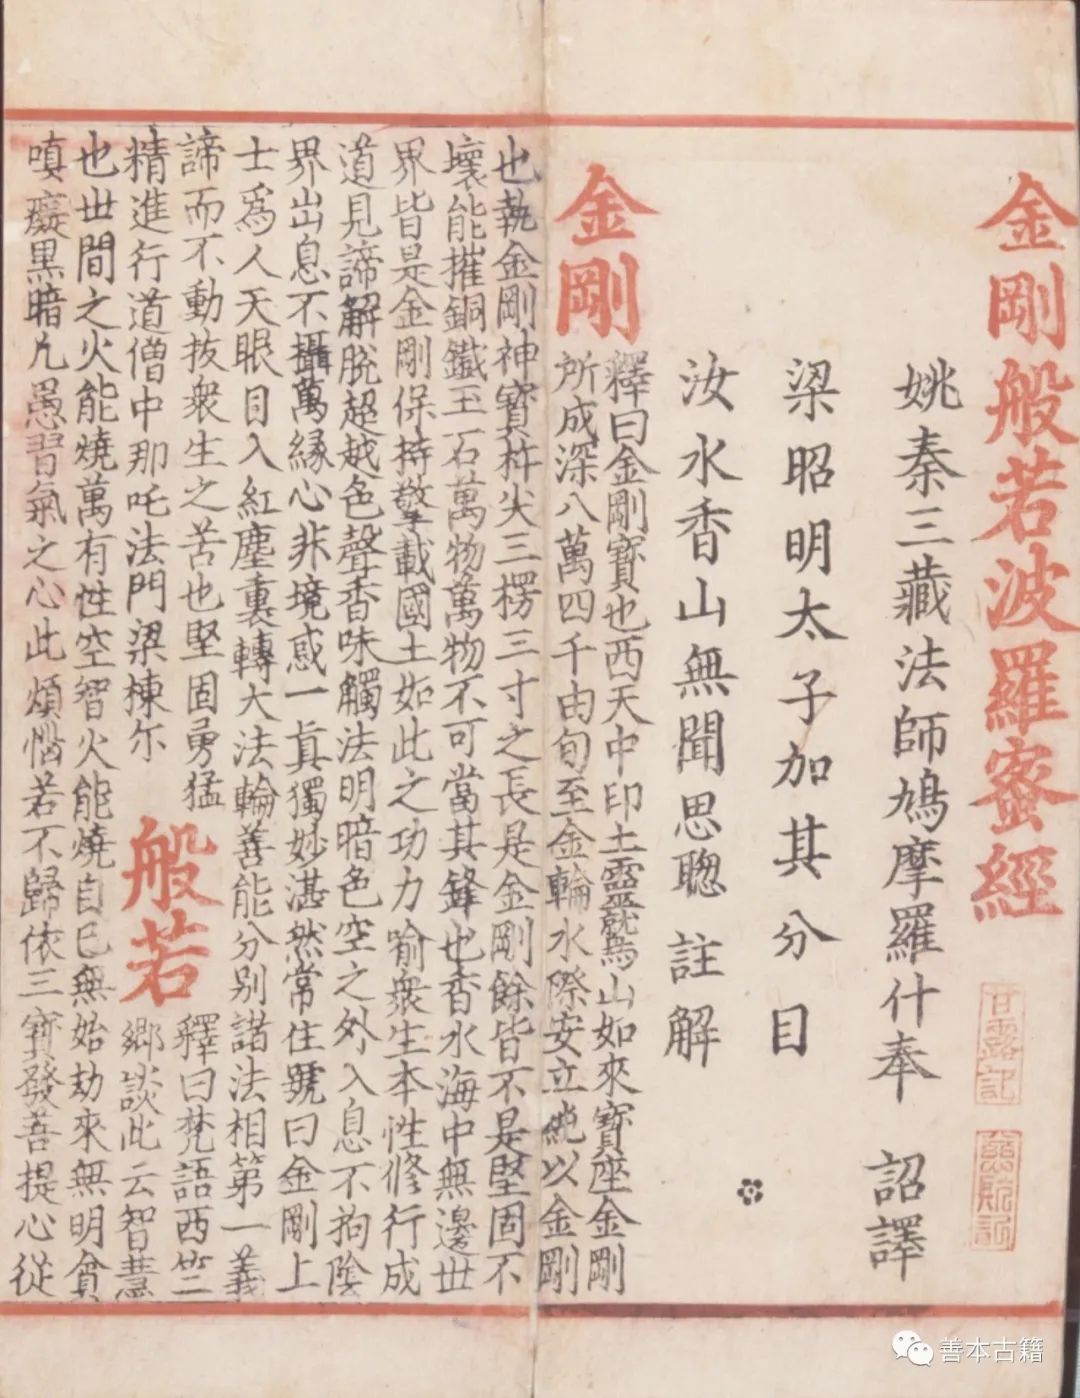 金剛般若波羅蜜經
甘露記
姚秦三藏法師鳩摩羅什奉 詔譯
梁昭明太子加其分目
汝水香山無聞思聰 註解
金剛
釋曰金剛寶也西天中印土靈鷲山如來寶座金剛
所成深八萬四千由旬至金輪水際安立純以金剛
也執金剛神寶杵尖三楞三寸之長是金剛餘皆不是堅固不
壞能摧銅鐵玉石萬物萬物不可當其鋒也香水海中無邊世
界皆是金剛保持擎載國土如此之功力喻衆生本性修行成
道見諦解脫超越色聲香味觸法明暗色空之外入息不拘陰
界出息不攝萬緣心非境惑一真獨妙湛然常住號曰金剛上
士爲人天眼目入紅塵裏轉大法輪善能分別諸法相第一義
諦而不動拔衆生之苦也堅固勇猛
精進行道僧中那吒法門梁棟尔
般若
釋曰梵語西竺
鄉談此云智慧
也世間之火能燒萬有性空智火能燒自己無始劫來無明貪
嗔癡黑暗凡愚習氣之心此煩惱若不歸依三寶發菩提心從
善本古籍